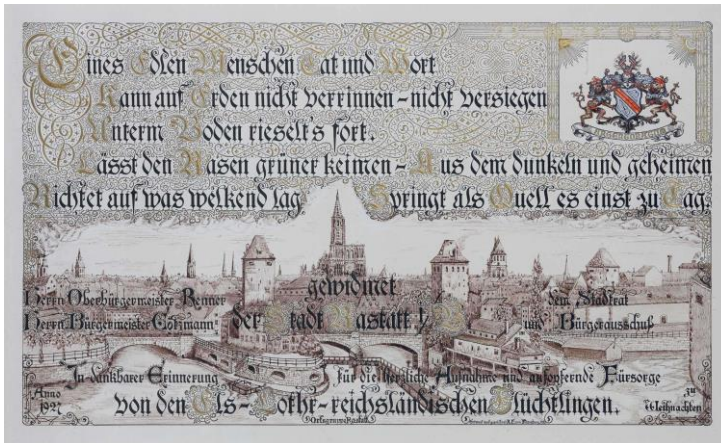 Eines Edlen Menschen Tat und Wort
Kann auf Erden nicht verrinnen – nicht versiegen
Unterm Boden rieselt's fort.
Lässt den Rasen grüner keimen – Aus dem dunkeln und geheimen
Richtet auf was welkend lag Springt als Quell es einst zu Tag.
gewidmet
Herrn Oberbürgermeister Renner dem Stadtrat
Herrn Bürgermeister Götzmann der Stadt Rastatt! und Bürgerausschuß
In dankbarer Erinnerung für die herzliche Aufnahme und aufopfernde Fürsorge
Anno 1927 von den Els-Lothr-reichsländischen Flüchtlingen. zu Weihnachten
Ortsgruppe Rastatt